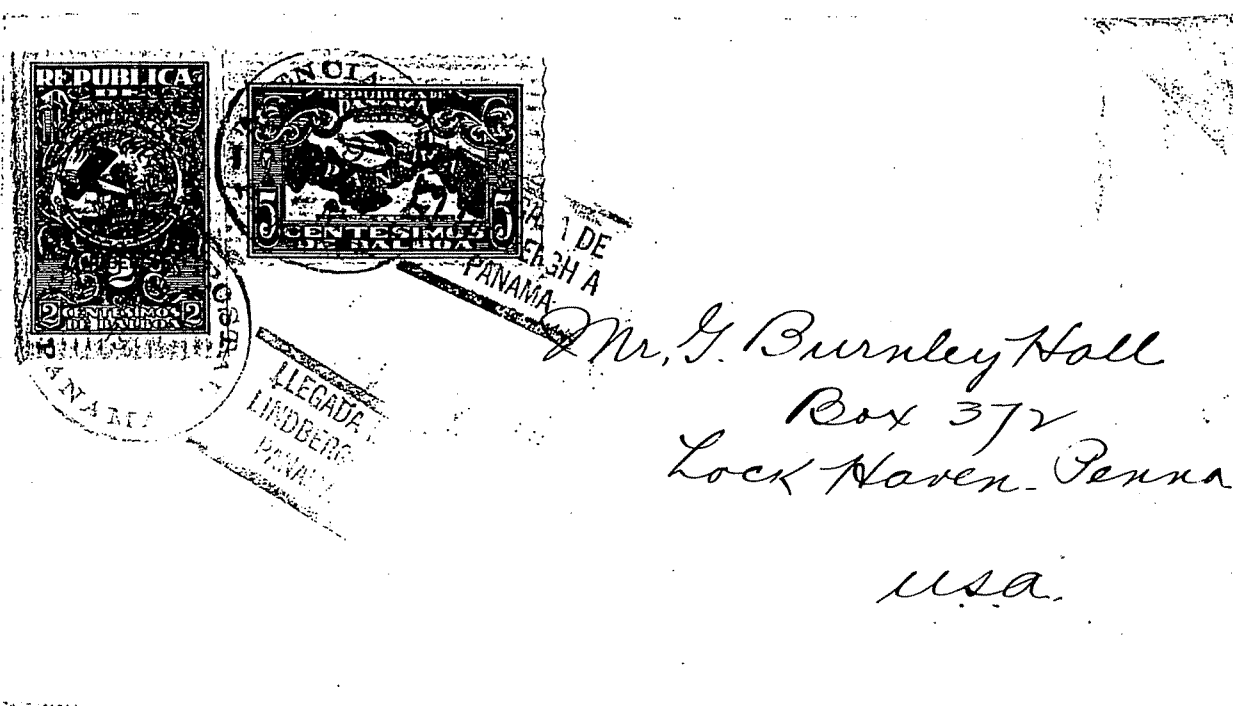 REPUBLICA
DE
2
2 CENTESIMOS 2
DE BALBOA
PANAMA
REPUBLICA DE
PANAMA
5 CENTESIMOS 5
DE BALBOA
DE
PANAMA
LLEGADA
LINDBERG
Mr. G. Burnley Hall
Box 372
Lock Haven. Penna
U.S.A.